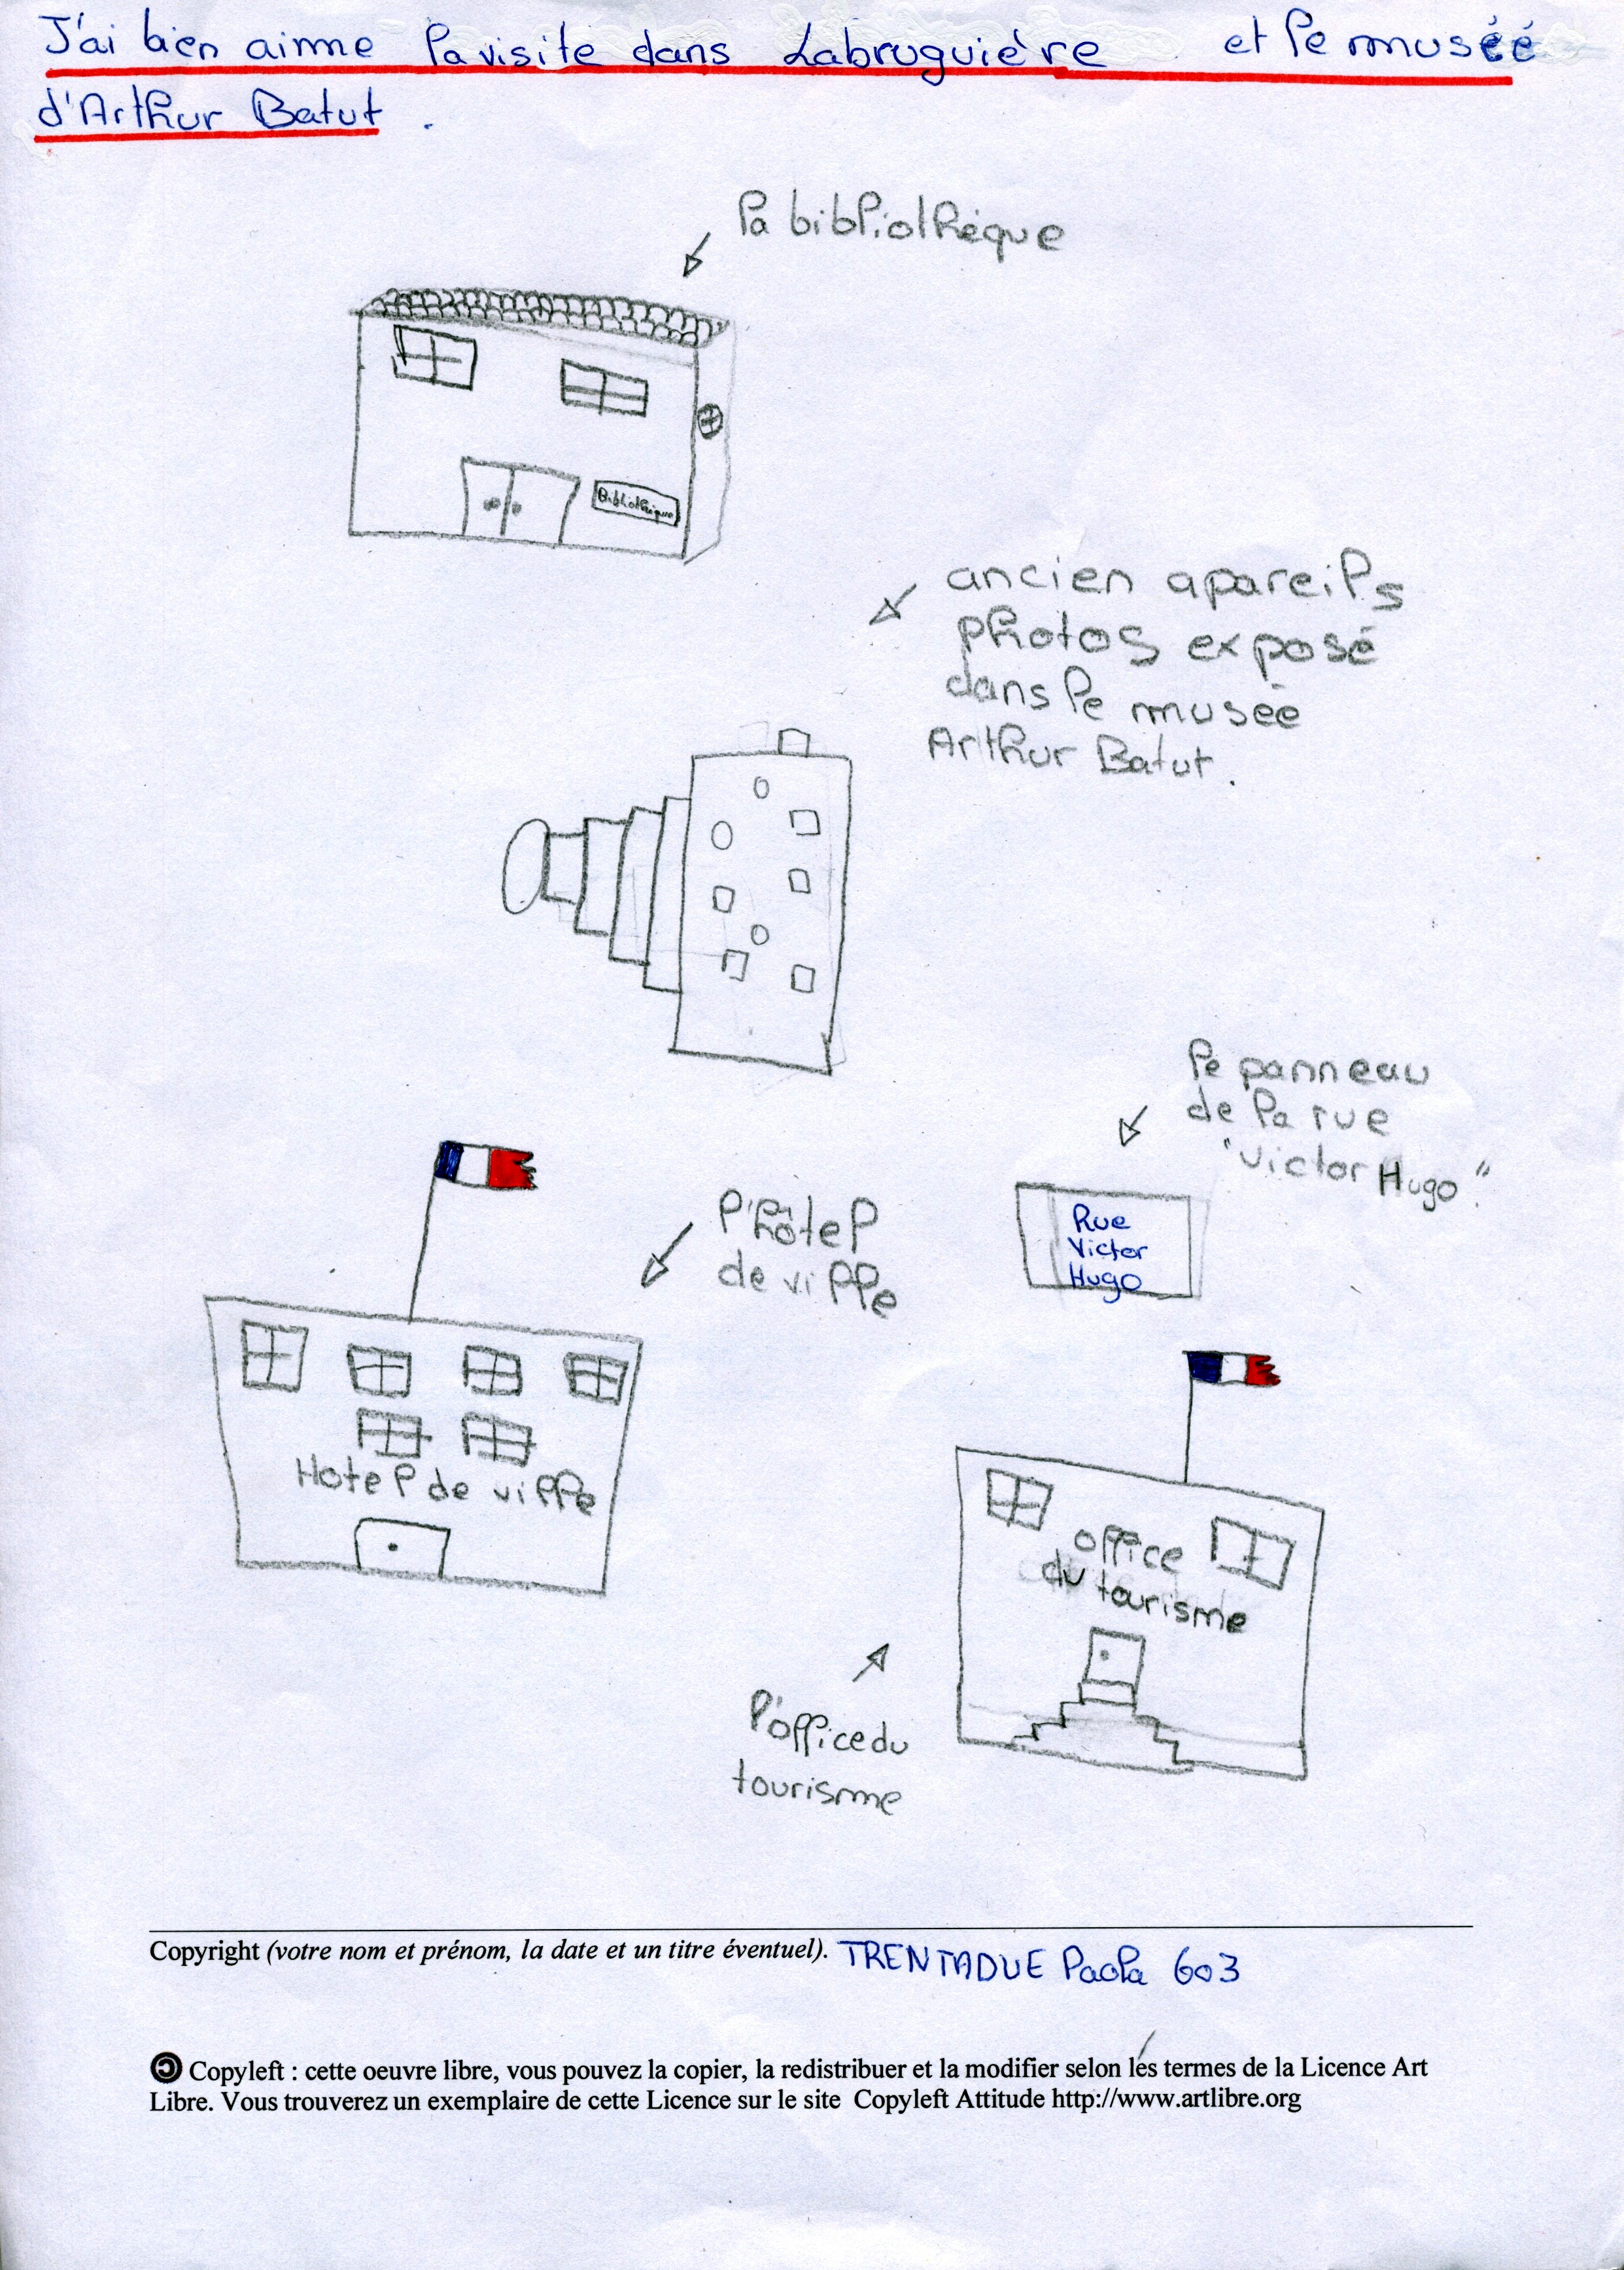 J'ai bien aimme la visite dans Labruguière et le muséé
d'Arthur Batut.
la bibliothèque
Bibliothèque
ancien apareils
photos exposé
dans le musée
Arthur Batut.
le panneau
de la rue
"Victor Hugo"
Rue
Victor
Hugo
l'hôtel
de ville
Hotel de ville
office
du tourisme
l'office du
tourisme
Copyright (votre nom et prénom, la date et un titre éventuel). TRENTADUE Paola 603
Copyleft : cette oeuvre libre, vous pouvez la copier, la redistribuer et la modifier selon les termes de la Licence Art
Libre. Vous trouverez un exemplaire de cette Licence sur le site Copyleft Attitude http://www.artlibre.org